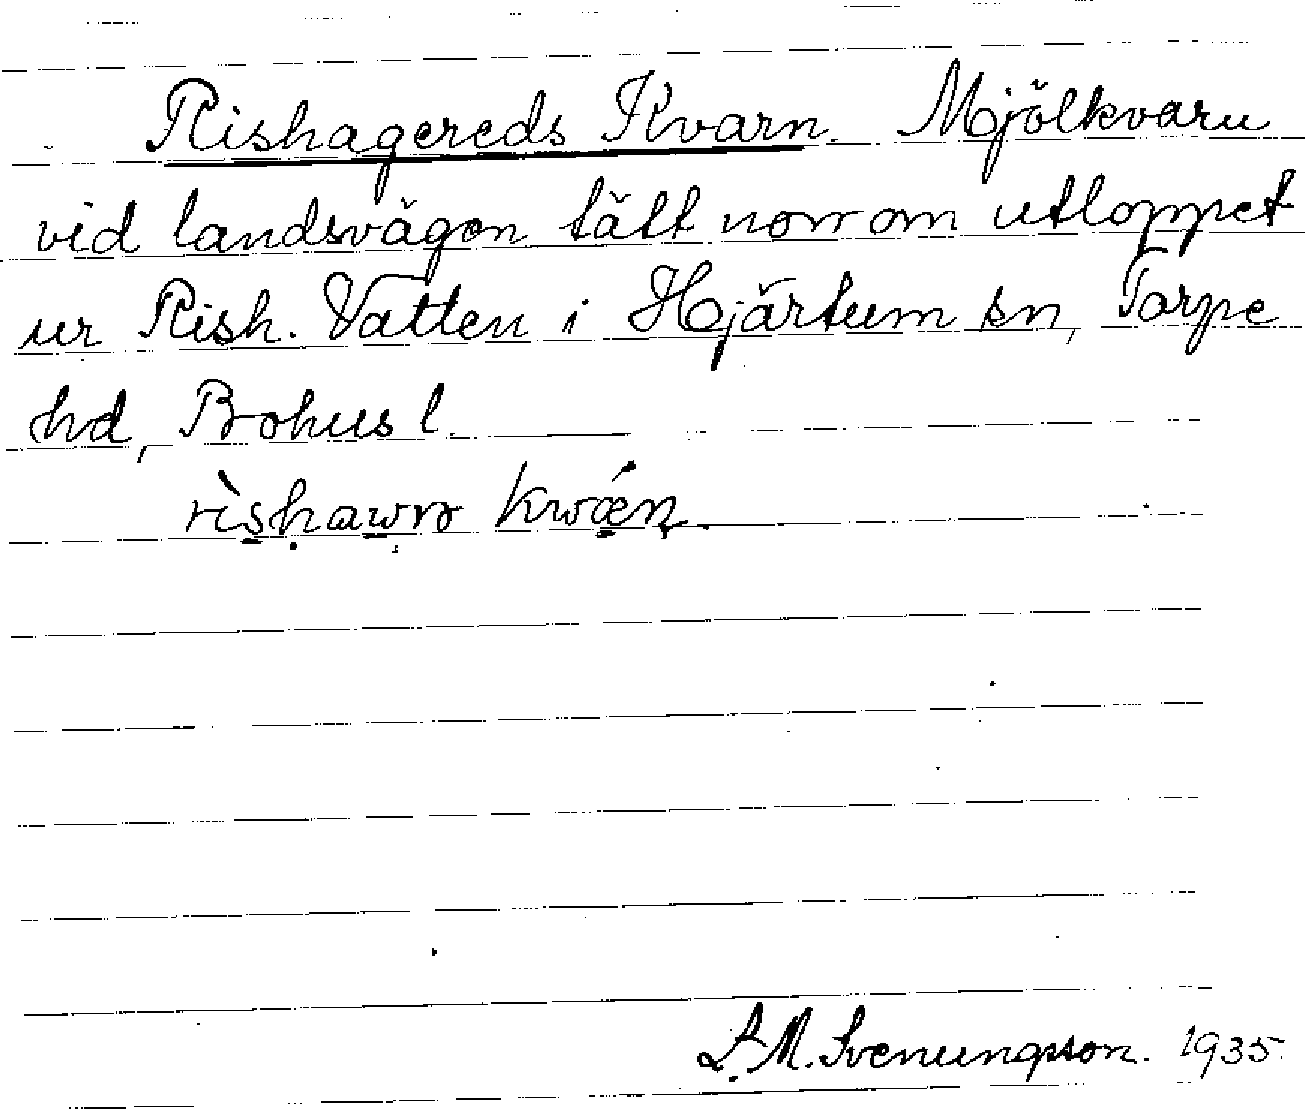 Rishagereds Kvarn. Mjölkvarn
vid landsvägen tätt norr om utloppet
ur Rish. Vatten i Hjärtum sn, Torpe
hd, Bohus l.
L. M. Svenungsson. 1935.